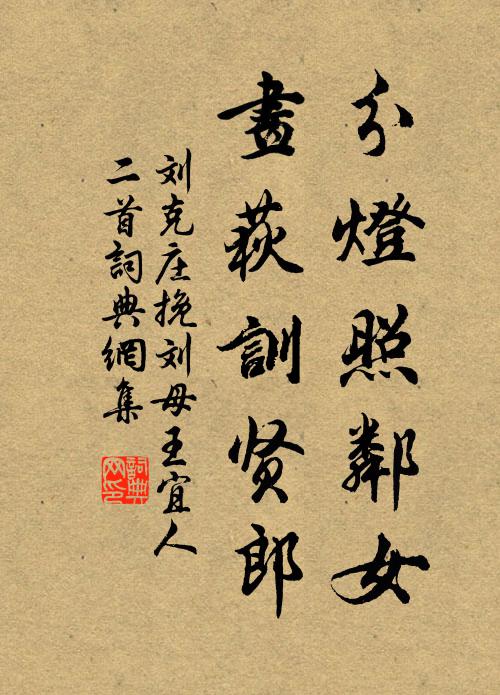 分燈照鄰女
畫荻訓贤郎
刘克庄挽刘母王宜人
二首詞典網集
詞典
网印